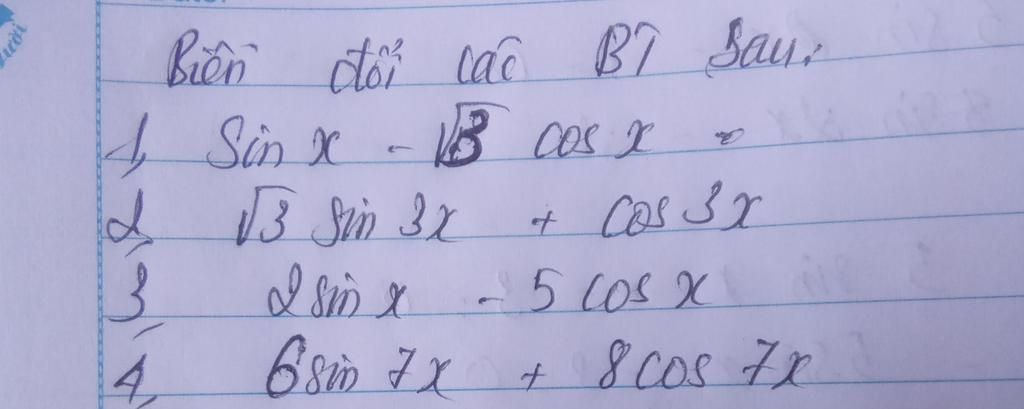 Biến đổi các BT sau:
1, Sin x - √3 cos x
2, √3 sin 3x + cos 3x
3, 2 sin x - 5 cos x
4, 6 sin 7x + 8 cos 7x